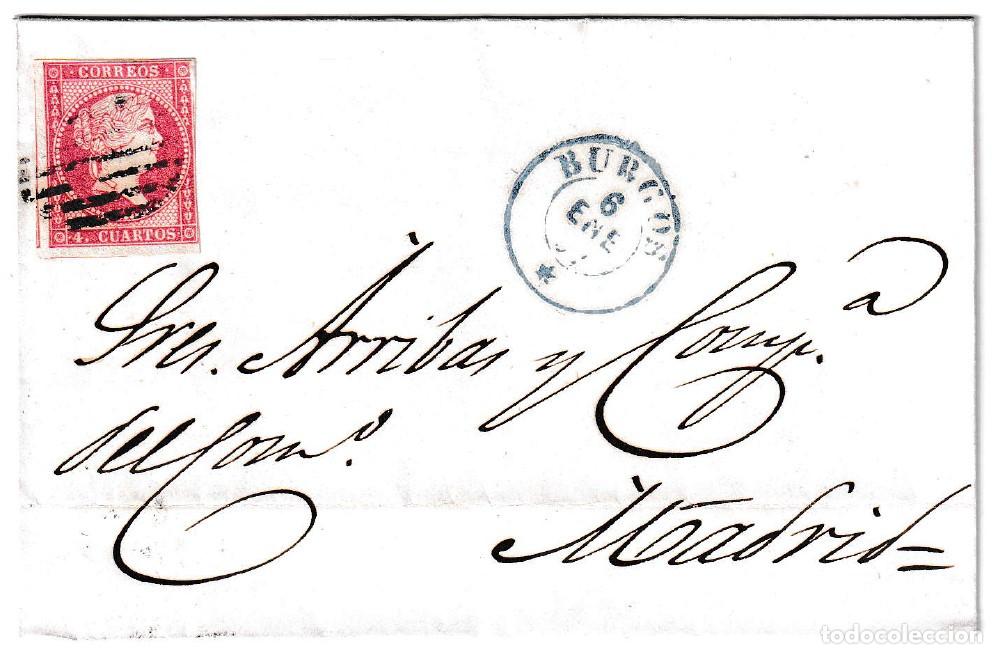 CORREOS
4. CUARTOS
BURGOS
6
ENE
Sres. Arribas y Comp.ª
del Com.º
Madrid=
todocoleccion